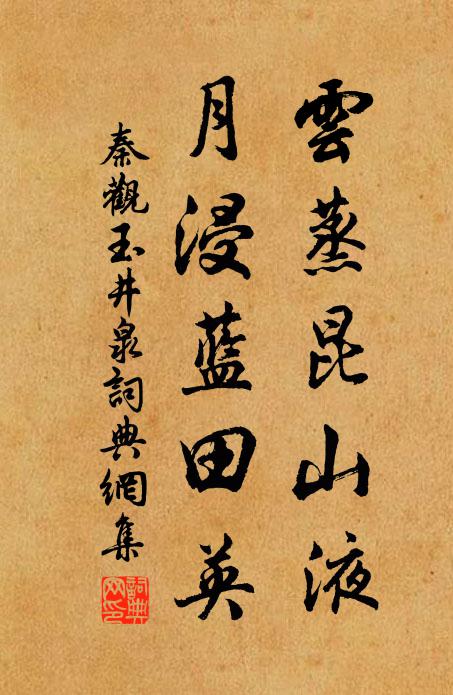 雲蒸昆山液
月浸藍田英
秦觀玉井泉詞典網集
詞典網印